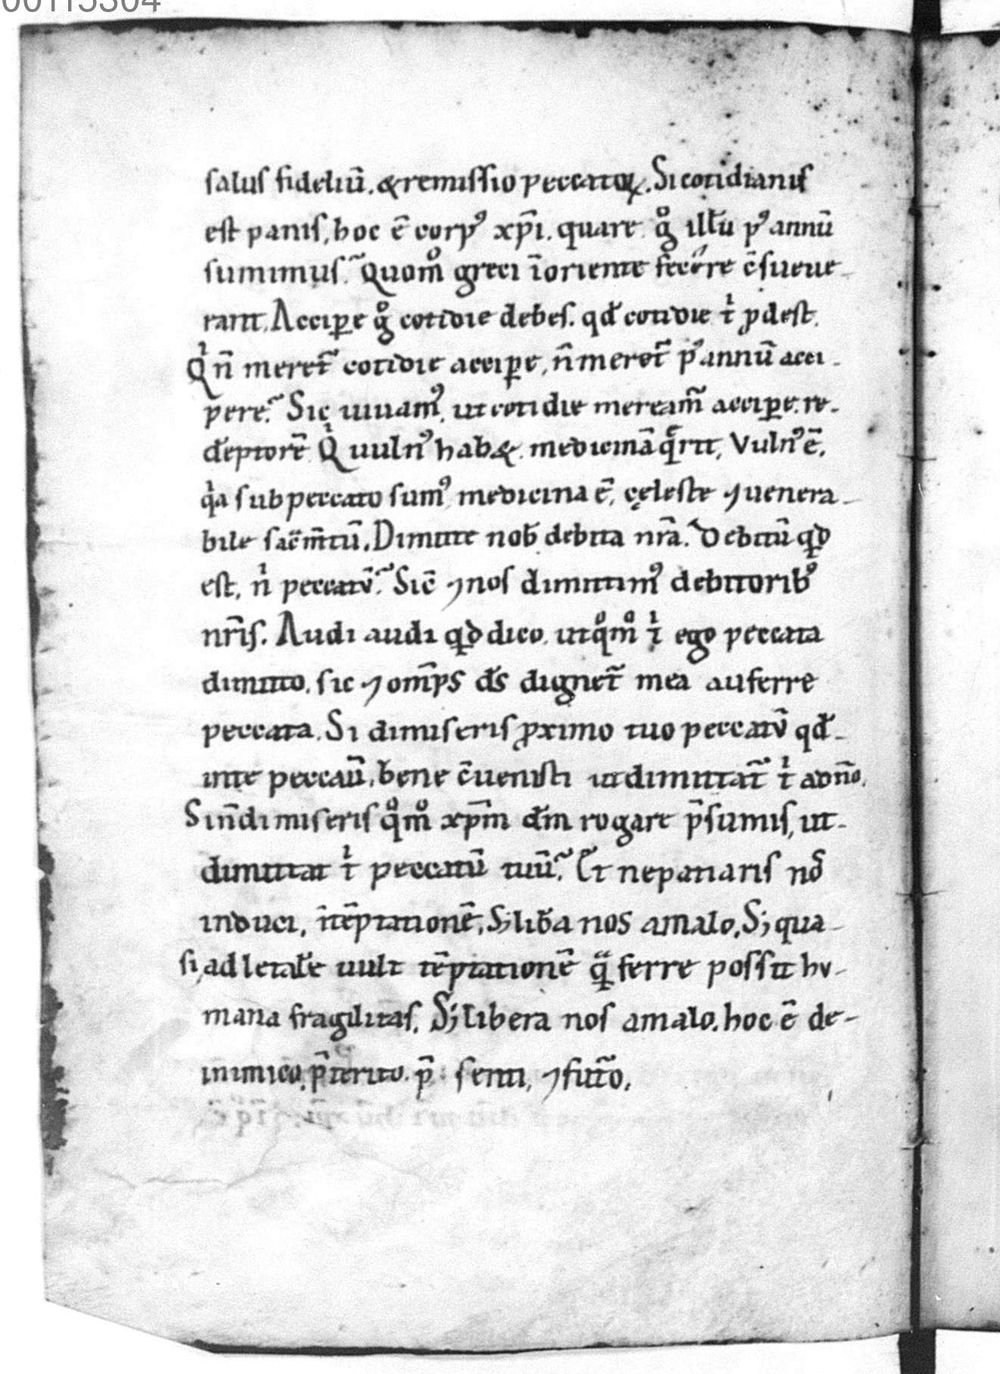 00115304
salus fideliū. & remissio peccatoꝝ. Si cotidianis
est panis, hoc ē corpꝰ xp̄i. quare gͦ illū pꝰ annū
sumimus. Quom̊ greci ī oriente fecere c̄sueue-
rant. Accipe gͦ cotidie debes. qđ cotidie t̍ ꝓdest.
Q̍ n̄ meret̄ cotidie accipe, n̄ meret̄ pꝰ annū acci-
pere. Sic uiuamꝰ, ut cotidie meream̄ accipe. re-
dēptorē. Q̍ uulnꝰ hab&, medicinā q̄rit. Vulnꝰ ē,
q̍a sub peccato sumꝰ, medicina ē, cęleste ⁊ uenera-
bile sac̄m̄tū. Dimitte nob̄ debita nr̄a. Debitū qđ
est, n̍ peccatū. Sic̄ ⁊ nos dimittimꝰ debitoribꝰ
nr̄is. Audi audi qđ dico. ut qͦm̊ t̍ ego peccata
dimitto. sic ⁊ om̄ps d̄s dignet̄ mea auferre
peccata. Si dimiseris ꝓximo tuo peccatū qđ-
in te peccau̅. bene c̄uenisti ut dimittat̄ t̍ a dn̄o.
Sin̄ dimiseris qͦm̊ xp̄m dm̄ rogare p̄sumis, ut-
dimittat t̍ peccatū tuū. Et ne patiaris nos̄
induci, ī tēptationē, S; lib̄a nos a malo. S; qua-
si, ad letale uult tēptationē q̄ ferre possit hu-
mana fragilitas. S; libera nos a malo. hoc ē de-
inimico, p̄terito. p̄ senti, ⁊ futr̄o.